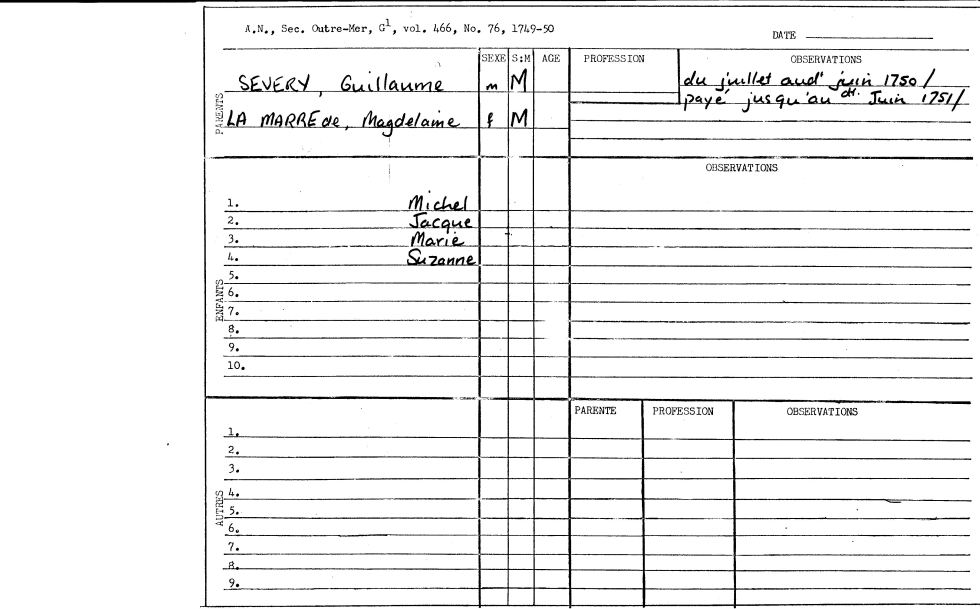 A.N., Sec. Outre-Mer, G1, vol. 466, No. 76, 1749-50
DATE
SEXE S:M AGE PROFESSION OBSERVATIONS
PARENTS
SEVERY, Guillaume m M du juillet audt juin 1750/
payé jusqu'au dt. Juin 1751/
LA MARRE de, Magdelaine f M
OBSERVATIONS
ENFANTS
1. Michel
2. Jacque
3. Marie
4. Suzanne
5.
6.
7.
8.
9.
10.
PARENTE PROFESSION OBSERVATIONS
AUTRES
1.
2.
3.
4.
5.
6.
7.
8.
9.